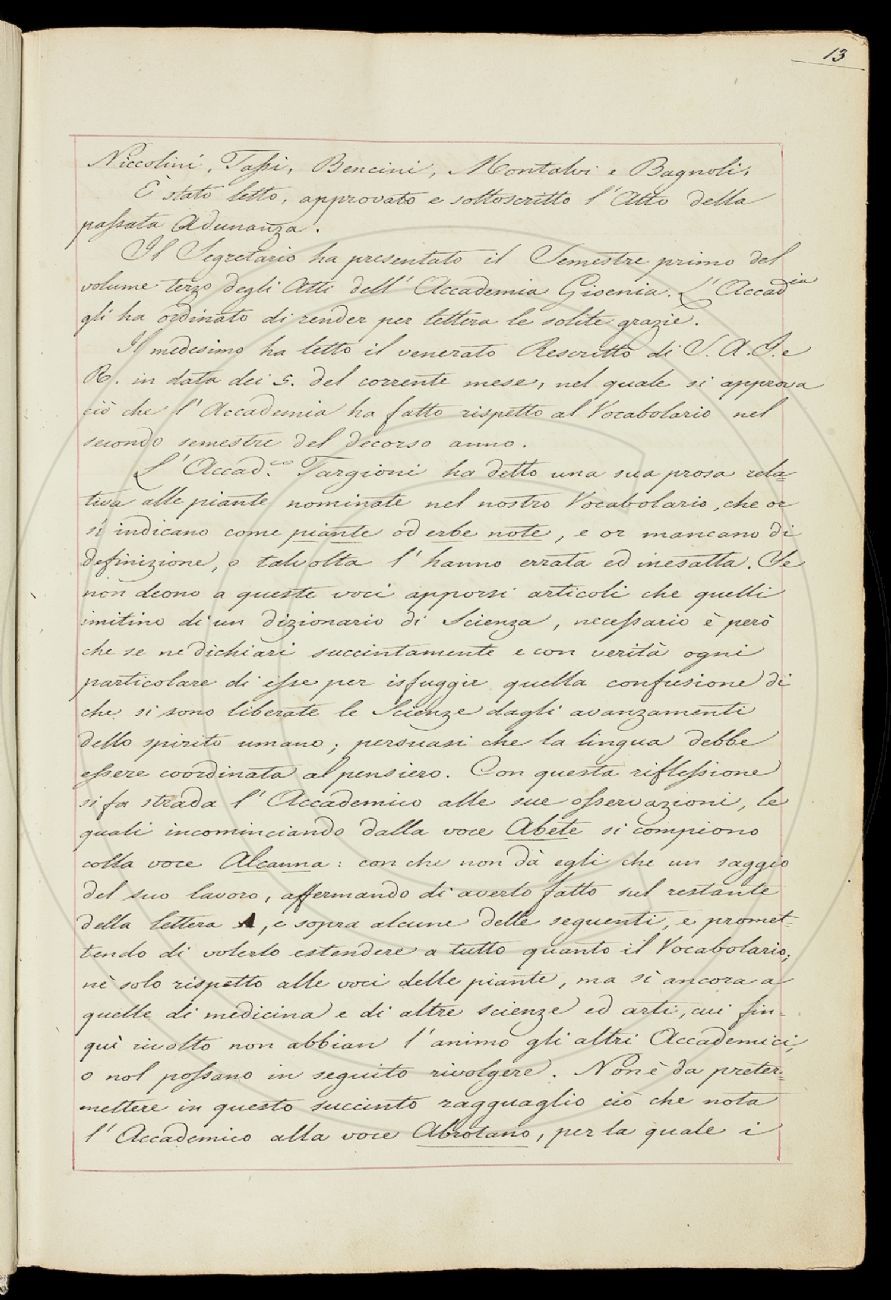 13
Niccolini, Tassi, Bencini, Montalvi e Bagnoli.
È stato letto, approvato e sottoscritto l'Atto della
passata Adunanza.
Il Segretario ha presentato il Semestre primo del
volume terzo degli Atti dell'Accademia Gioenia. L'Accad.ia
gli ha ordinato di render per lettera le solite grazie.
Il medesimo ha letto il venerato Rescritto di S. A. I. e
R. in data dei 5. del corrente mese, nel quale si approva
ciò che l'Accademia ha fatto rispetto al Vocabolario nel
secondo semestre del decorso anno.
L'Accad.co Targioni ha detto una sua prosa rela=
tiva alle piante nominate nel nostro Vocabolario, che or
si indicano come piante od erbe note, e or mancano di
definizione, o talvolta l'hanno errata ed inesatta. Se
non deono a queste voci apporsi articoli che quelli
imitino di un dizionario di Scienza, necessario è però
che se ne dichiari succintamente e con verità ogni
particolare di esse per isfuggir quella confusione di
che si sono liberate le Scienze dagli avanzamenti
dello spirito umano; persuasi che la lingua debbe
essere coordinata al pensiero. Con questa riflessione
si fa strada l'Accademico alle sue osservazioni, le
quali incominciando dalla voce Abete si compiono
colla voce Alcanna: con che non dà egli che un saggio
del suo lavoro, affermando di averlo fatto sul restante
della lettera A, e sopra alcune delle seguenti, e promet=
tendo di volerlo estendere a tutto quanto il Vocabolario;
nè solo rispetto alle voci delle piante, ma sì ancora a
quelle di medicina e di altre scienze ed arti, cui fin-
quì rivolto non abbian l'animo gli altri Accademici,
o nol possano in seguito rivolgere. Non è da preter=
mettere in questo succinto ragguaglio ciò che nota
l'Accademico alla voce Abrotano, per la quale i